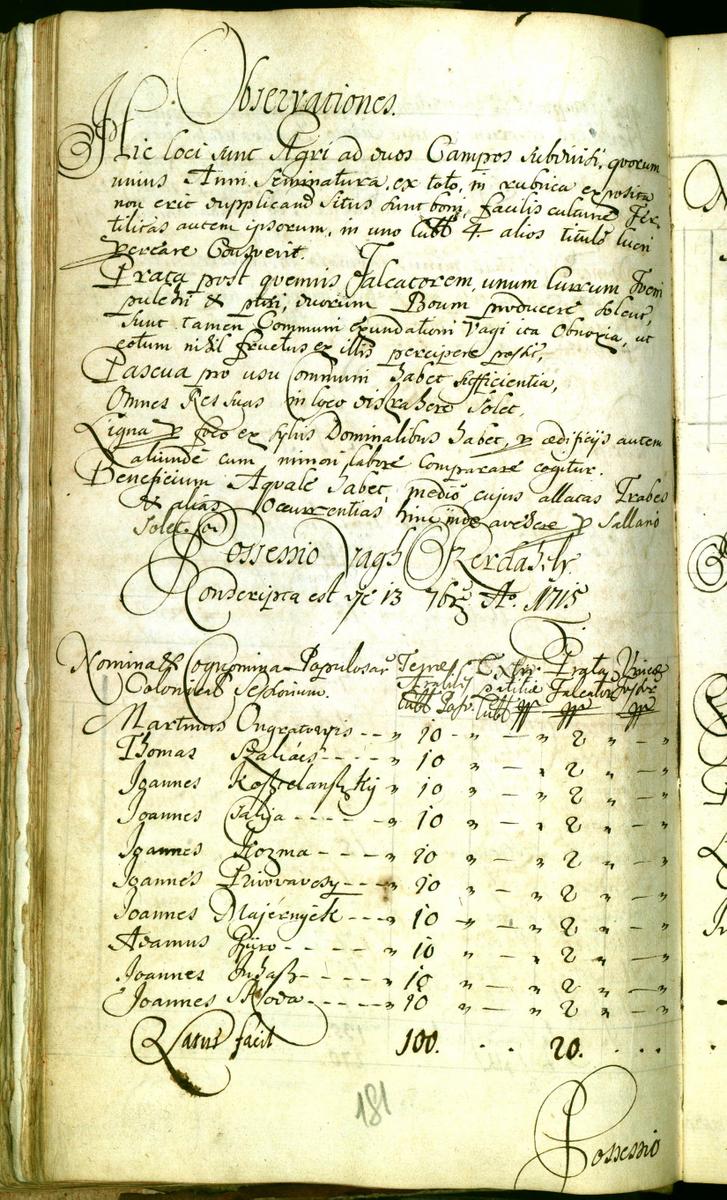 Observationes.
Hic loci sunt Agri ad duos Campos subdivisi, quorum
unius Anni Seminatura, ex toto, in rubrica exposita
non erit supplicand Situs sunt boni, facilis culturae Fer-
tilitas autem ipsorum, in uno Cubb 4. alios titulo lucri
Consvevit.
Prata post quemvis Falcatorem, unum Currum Foeni
pulchri & puri, duorum Boum producere solent,
Sunt tamen Communi exundationi Vagi ita Obnoxia, ut
nihil fructus ex illis percipere possit,
Pascua pro usu Communi, habet sufficientia,
Omnes Res suas in loco distrahere Solet,
Ligna p foco ex sylvis Dominalibus habet, p aedificijs autem
aliunde cum minori labore Comparare cogitur.
Beneficium Aquale habet, medio cujus allatas Trabes
& alias Occurrentias, hinc inde avehere p Sallario
Solet.
Possessio Vagh
Conscripta est die 13 7bris Ao. 1715
Nomina & Cognomina Populosar Terrae Extir Prata Vineae
Colonical Sessionum. Arabiles patitiae Falcator
Cubb Cubb
Martinus - - " 10 " — " 2 " — "
Thomas - - - " 10 " — " 2 " — "
Joannes Kosztelanszky " 10 " — " 2 " — "
Joannes - - - - - " 10 " — " 2 " — "
Joannes Kozma - - - - " 10 " — " 2 " — "
Joannes - - - " 10 " — " 2 " — "
Joannes Majérnyék - - - " 10 " — " 2 " — "
Adamus - - - - - " 10 " — " 2 " — "
Joannes Juhasz - - - - " 10 " — " 2 " — "
Joannes Skoda - - - - " 10 " — " 2 " — "
Latus facit 100. . . 20. . . .
181
Possessio